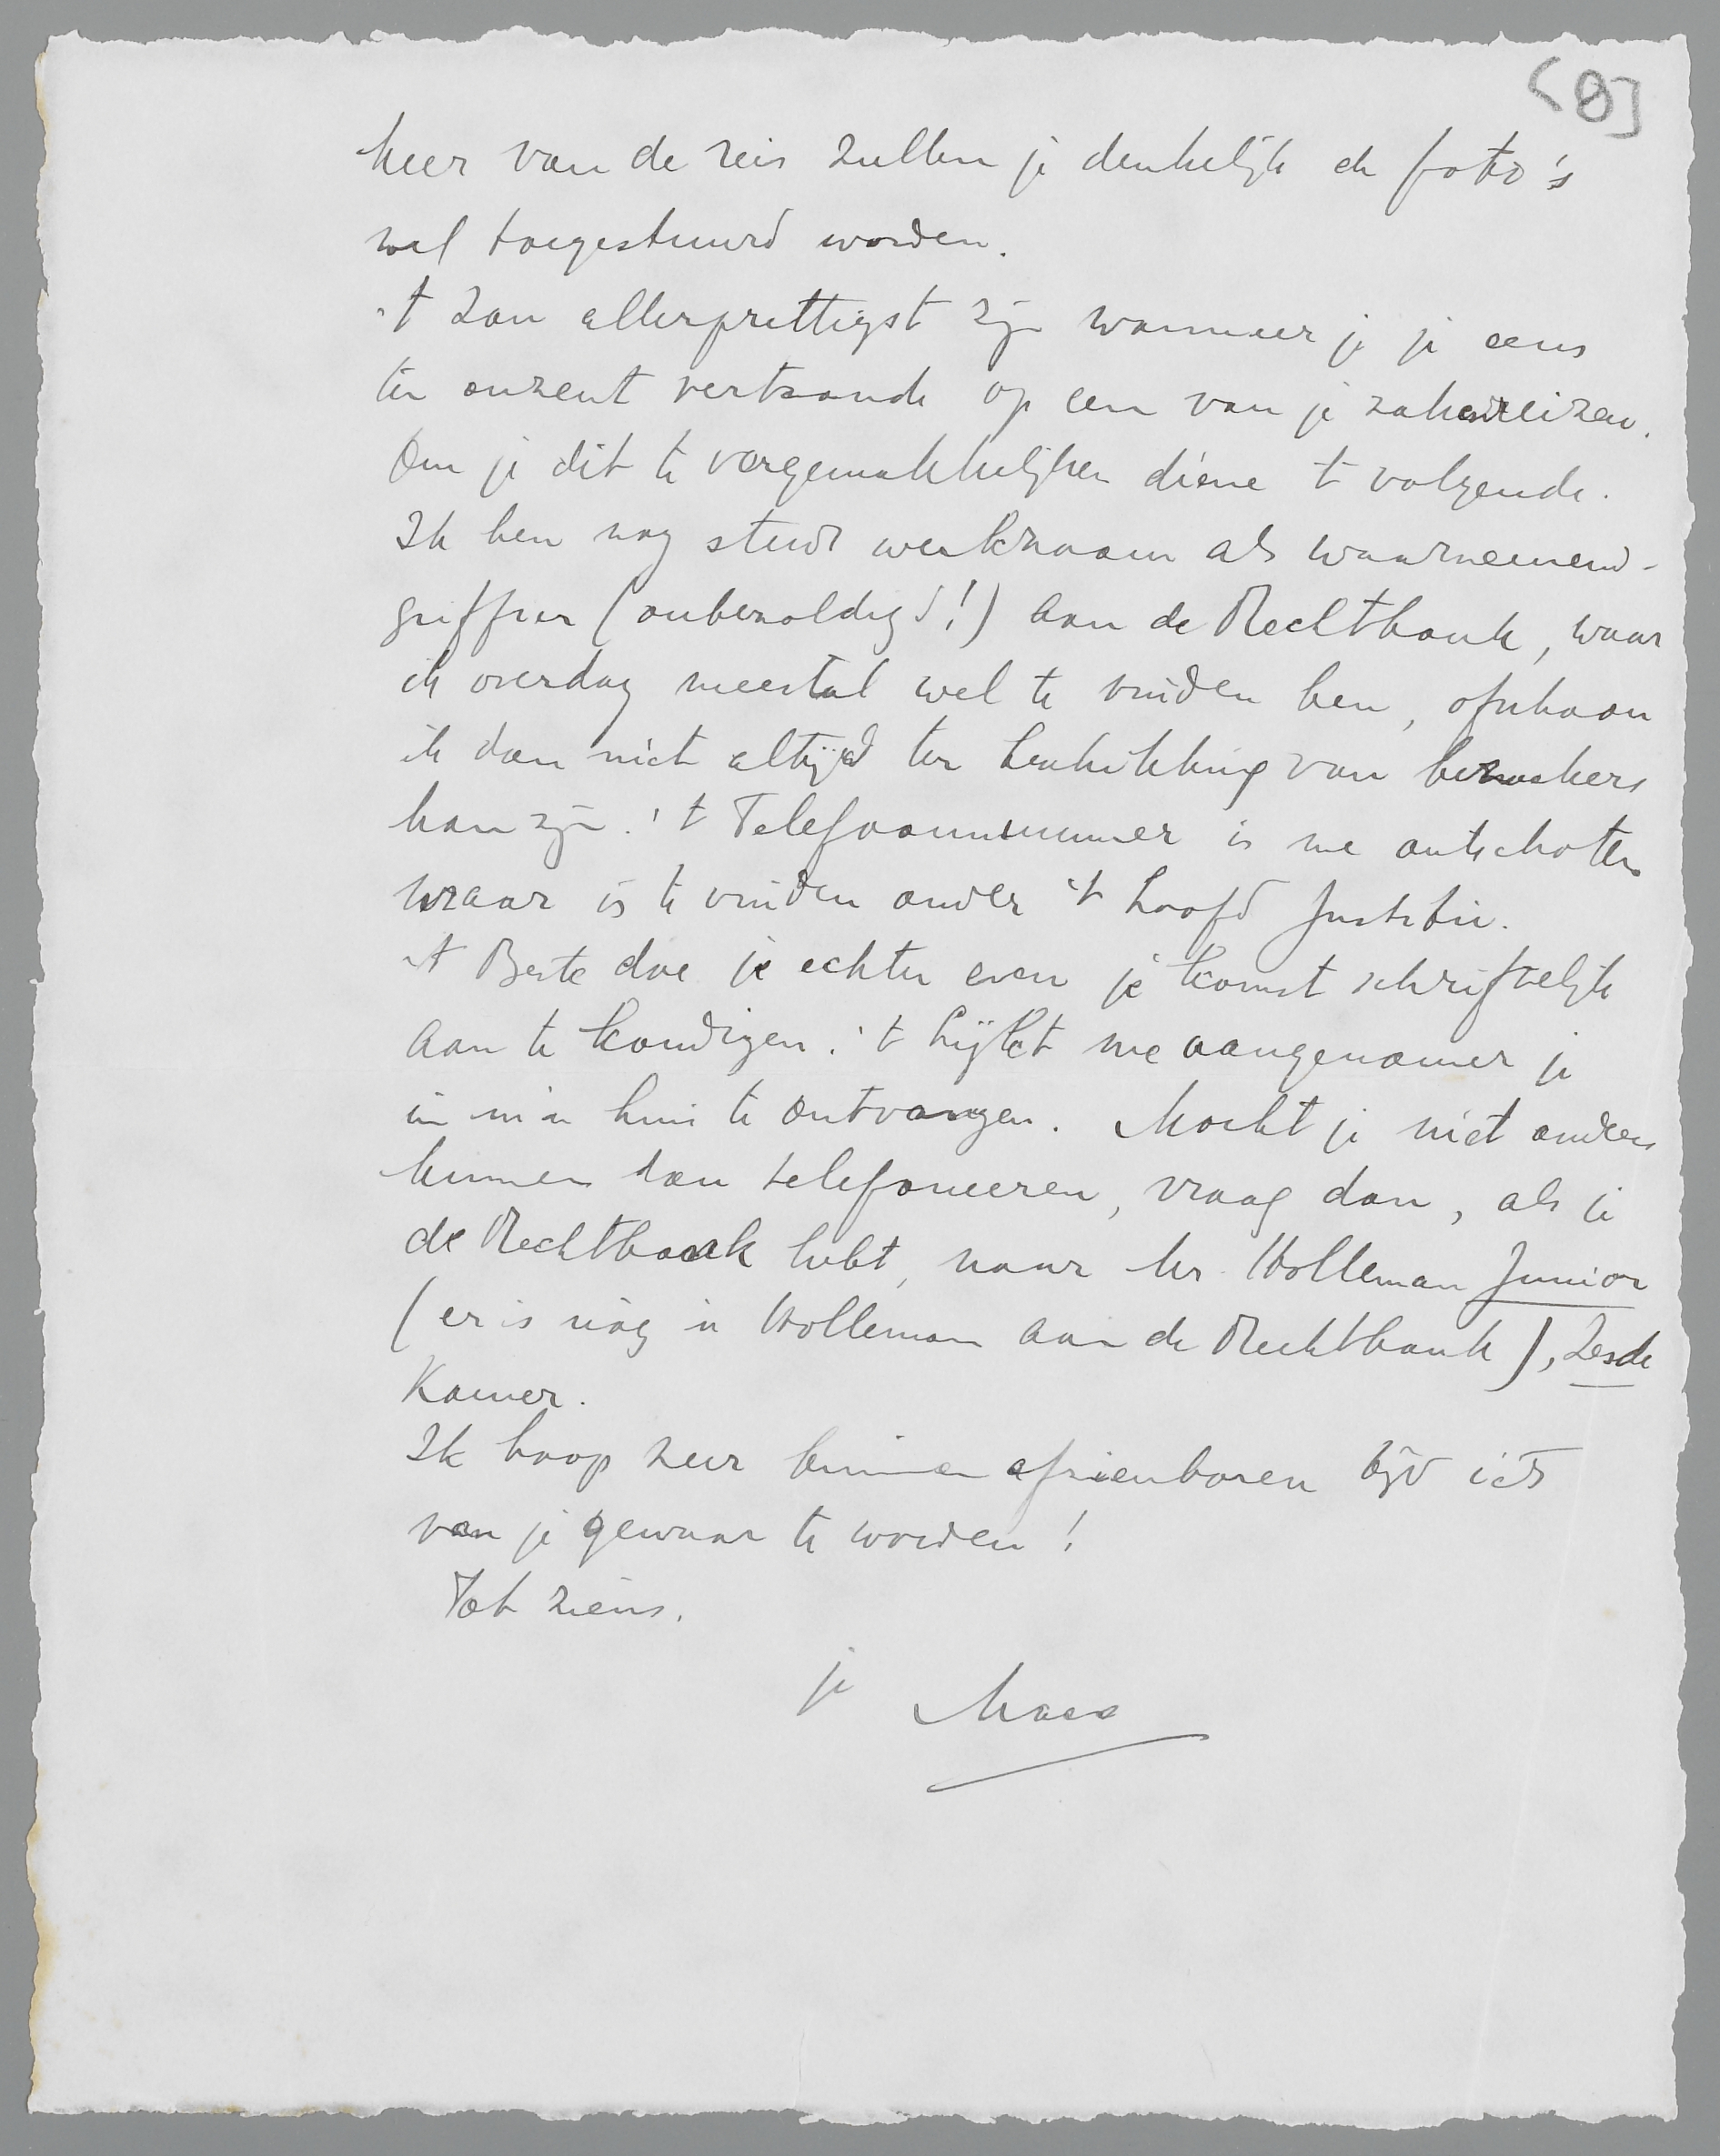 [8]
keer van de reis zullen je denkelijk de foto's
wel toegestuurd worden.
't Zou allerprettigst zijn wanneer je je eens
ten onzent vertoonde op een van je zakenreizen.
Om je dit te vergemakkelijken diene 't volgende.
Ik ben nog steeds werkzaam als waarnemend-
griffier (onbezoldigd!) aan de Rechtbank, waar
ik overdag meestal wel te vinden ben, ofschoon
ik dan niet altijd ter beschikking van bezoekers
kan zijn. 't Telefoonnummer is me ontschoten
maar is te vinden onder 't hoofd Justitie.
't Beste doe je echter even je komst schriftelijk
aan te kondigen. 't Lijkt me aangenamer je
in m'n huis te ontvangen. Mocht je niet anders
kunnen dan telefoneeren, vraag dan, als je
de Rechtbank hebt, naar Mr. Holleman Junior
(er is nóg 'n Holleman aan de Rechtbank), Zesde
Kamer.
Ik hoop zeer binnen afzienbaren tijd iets
van je gewaar te worden!
Tot ziens.
je